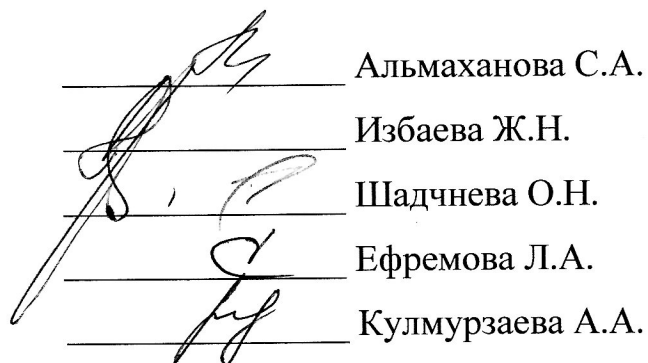 Альмаханова С.А.
Избаева Ж.Н.
Шадчнева О.Н.
Ефремова Л.А.
Кулмурзаева А.А.